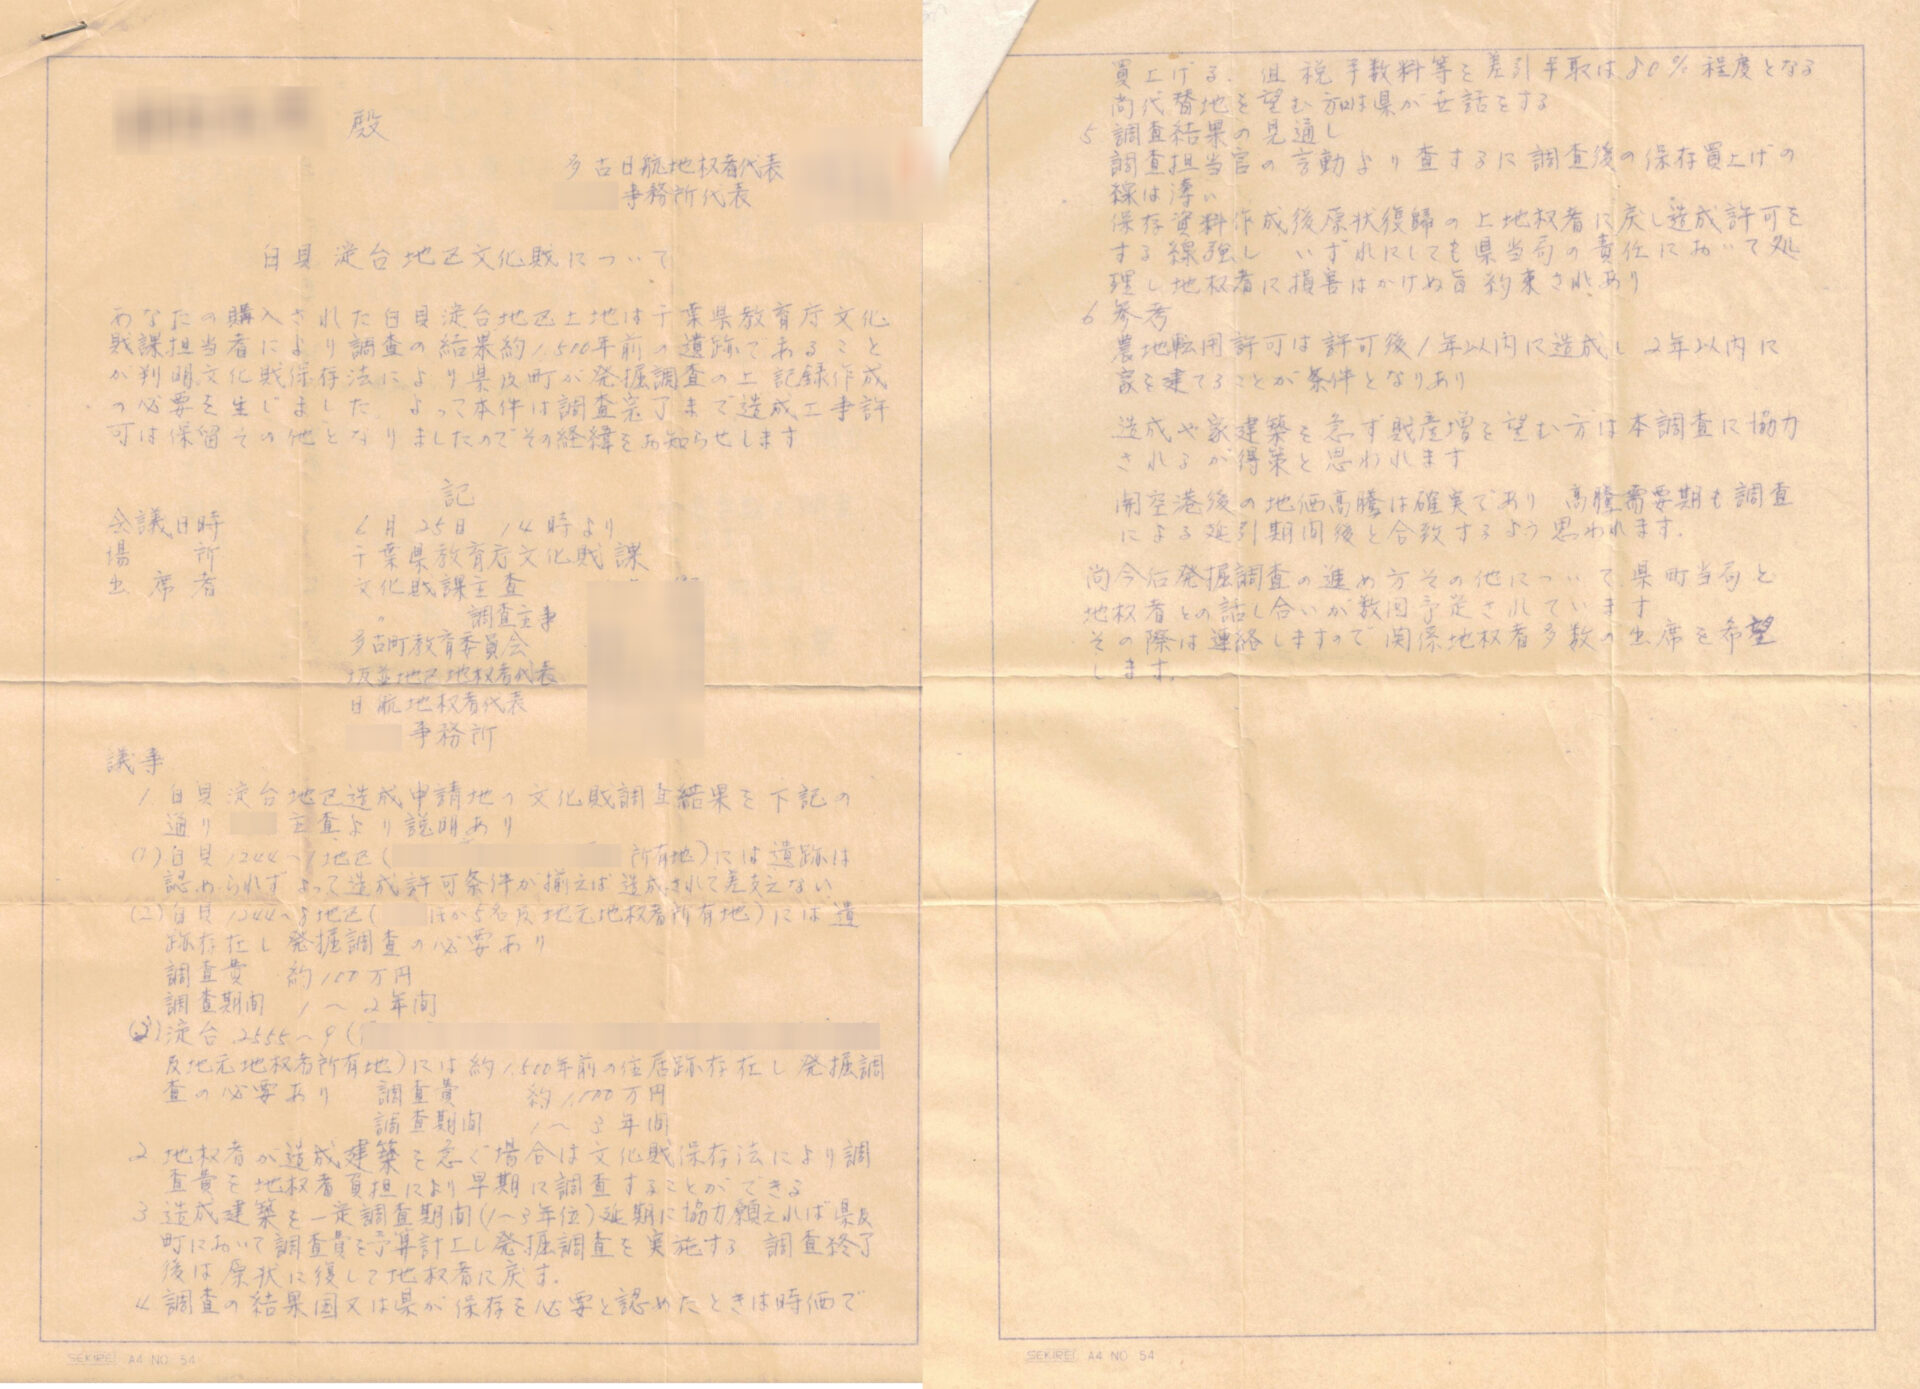 殿
多古日航地权者代表
事務所代表
白貝淀台地区文化財について
あなたの購入された白貝淀台地区土地は千葉県教育庁文化
財課担当者により調査の結果約1,500年前の遺跡であること
が判明文化財保存法により県及町が発掘調査の上記録作成
の必要を生じました。よって本件は調査完了まで造成工事許
可は保留その他となりましたのでその経緯をお知らせします
記
会議日時 6月25日 14時より
場所 千葉県教育庁文化財課
出席者 文化財課主査
〃 調査主事
多古町教育委員会
坂並地区地权者代表
日航地权者代表
事務所
議事
1 白貝淀台地区造成申請地の文化財調査結果を下記の
通り 主査より説明あり
(1)白貝1244~1地区( 所有地)には遺跡は
認められずよって造成許可条件が揃えば造成されて差支えない
(2)白貝1244~8地区( ほか5名及地元地权者所有地)には遺
跡存在し発掘調査の必要あり
調査費 約100万円
調査期間 1~2年間
(3)淀台2555~9(
及地元地权者所有地)には約1,500年前の住居跡存在し発掘調
査の必要あり 調査費 約1,000万円
調査期間 1~3年間
2 地权者が造成建築を急ぐ場合は文化財保存法により調
査費を地权者負担により早期に調査することができる
3 造成建築を一定調査期間(1~3年位)延期に協力願えれば県及
町において調査費を予算計上し発掘調査を実施する 調査終了
後は原状に復して地权者に戻す。
4 調査の結果国又は県が保存を必要と認めたときは時価で
SEKIREI A4 NO 54
買上げる、但税手数料等を差引手取は80%程度となる
尚代替地を望む方は県が世話をする
5 調査結果の見通し
調査担当官の言動より査するに調査後の保存買上げの
線は薄い
保存資料作成後原状復帰の上地权者に戻し造成許可を
する線強し いずれにしても県当局の責任において処
理し地权者に損害はかけぬ旨約束されあり
6 参考
農地転用許可は許可後1年以内に造成し2年以内に
家を建てることが条件となりあり
造成や家建築を急ず財産増を望む方は本調査に協力
されるが得策と思われます
開空港後の地価高騰は確実であり 高騰需要期も調査
による延引期間後と合致するよう思われます。
尚今后発掘調査の進め方その他について県町当局と
地权者との話し合いが数回予定されています
その際は連絡しますので関係地权者多数の出席を希望
します。
SEKIREI A4 NO 54